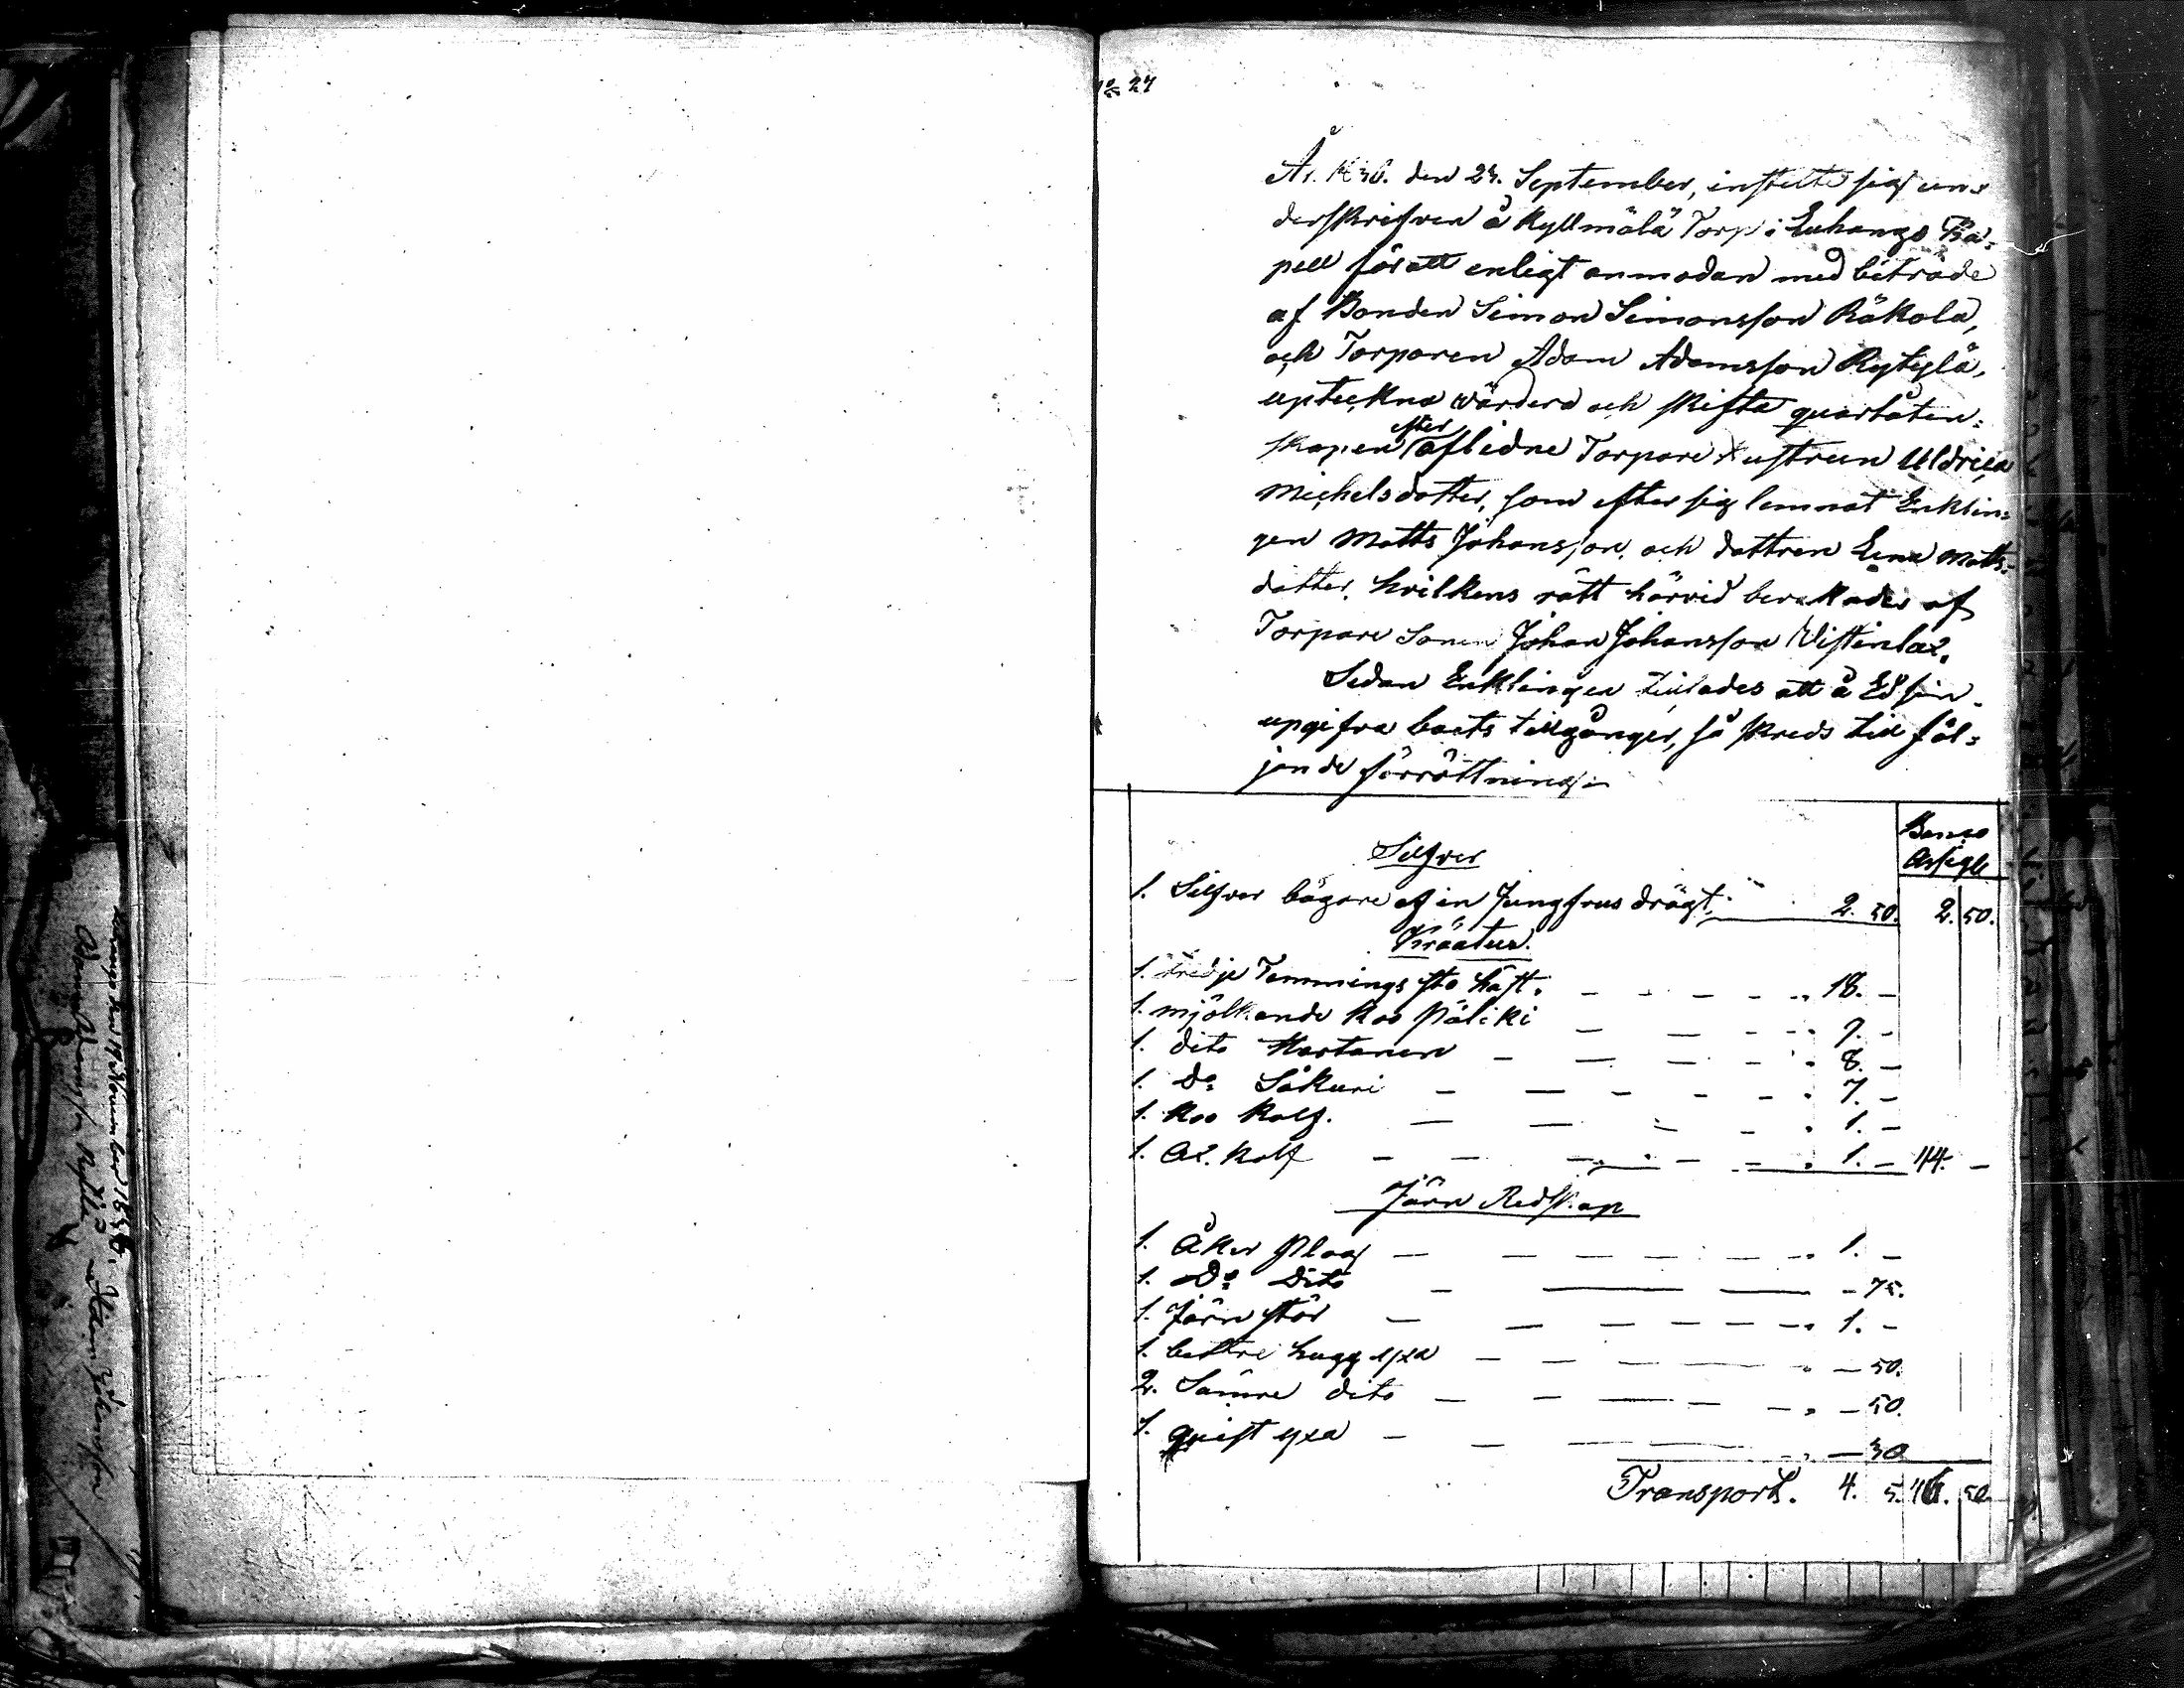 No 27
År 1836. den 23. September, instelte sig un-
derskrifven å Kyllmälä Torp i Luhango Ka-
pell för att enligt anmodan med biträde
af Bonden Simon Simonsson Räkola,
och Torparen Adam Adamsson Rytylä,
upteckna värdera och skifta qvarlåten-
skapen efter aflidne Torpare Hustrun Uldrica
Michelsdotter, som efter sig lemnat Enklin-
gen Matts Johansson, och dottren Lena Matts-
dotter, hvilkens rätt härvid bevakades af
Torpare Sonen Johan Johansson
Sedan Enklingen tillades att å Ed sin
upgifva boets tillgångar, så skreds till föl-
jande förrättning
Banco
Assigt
Silfver
1. Silfver bägare af en Jungfrus drägt 2. 50. 2. 50.
Kräatur.
1. tredje Temmings sto häst. 18. -
1. mjölkande Koo Päliki 9. -
1. dito Mertanen 8. -
1. Do Säkuri 7. -
1. Koo Kalf. 1. -
1. Ox. Kalf 1. - 44. -
Järn Redskap
1. Åker Plog 1. -
1. Do Dito - 75.
1. Järn stör 1. -
1. bettre hugg yxa - 50.
2. Sämre dito - 50.
1. qvist yxa - 30
Transport. 4. 5. 46. 50